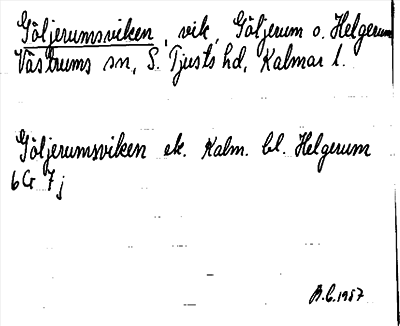 Göljerumsviken, vik, Göljerum o. Helgerum
Västrums sn, S. Tjusts hd, Kalmar l.
Göljerumsviken ek. Kalm. bl. Helgerum
6G 7j
A.C. 1957